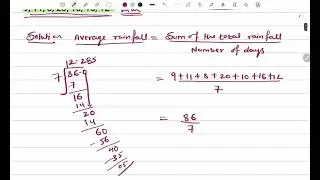 Solution Average rainfall = Sum of the total rainfall
Number of days
12.285
7 86.0
7
16
14
20
14
60
- 56
40
- 35
05
= 9+11+8+20+10+16+12
7
= 86
7